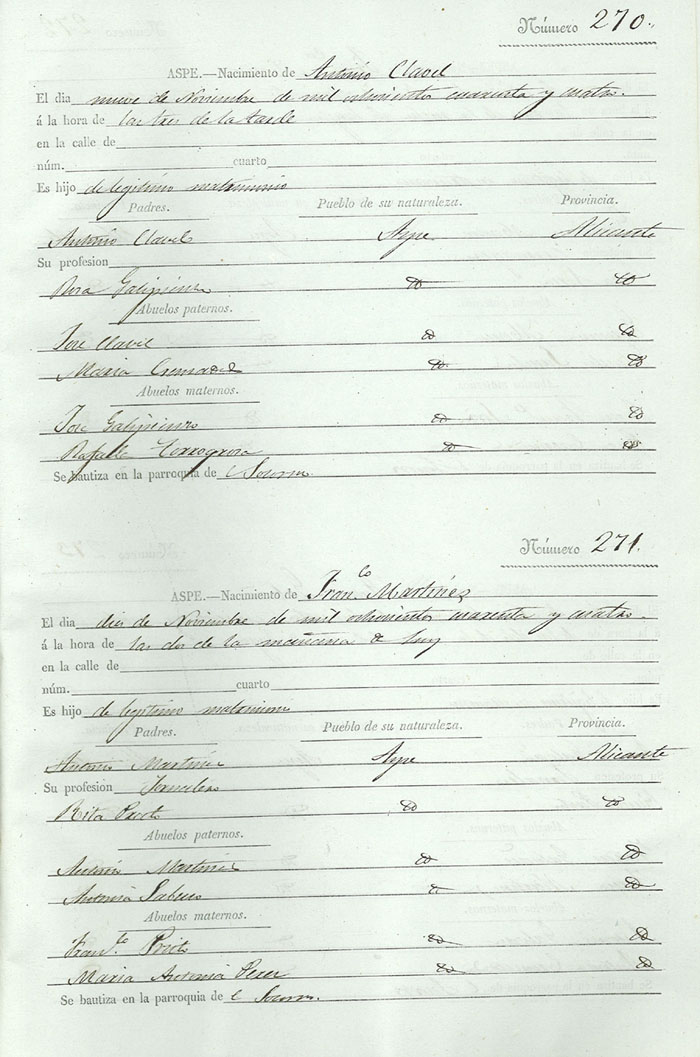 Número 270.
ASPE.—Nacimiento de Antonio Clavel
El dia nueve de Noviembre de mil ochocientos cuarenta y cuatro.
á la hora de las tres de la tarde
en la calle de
núm. cuarto
Es hijo de legitimo matrimonio
Padres. Pueblo de su naturaleza. Provincia.
Antonio Clavel Aspe Alicante
Su profesion
Rosa Galipienso
Abuelos paternos.
Jose Clavel
Maria Cremades
Abuelos maternos.
Jose Galipienso
Rafaela Torregrosa
Se bautiza en la parroquia de el Socorro.
Número 271.
ASPE.—Nacimiento de Fran.co Martinez
El dia diez de Noviembre de mil ochocientos cuarenta y cuatro.
á la hora de las dos de la mañana de hoy
en la calle de
núm. cuarto
Es hijo de legitimo matrimonio
Padres. Pueblo de su naturaleza. Provincia.
Antonio Martinez Aspe Alicante
Su profesion Jornalero
Rita Prieto
Abuelos paternos.
Antonio Martinez
Antonia
Abuelos maternos.
Fran.co Prieto
Maria Antonia Perez
Se bautiza en la parroquia de el Socorro.